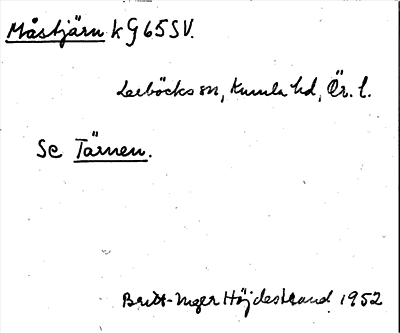 Måstjärn k G 65 SV.
Lerbäcks sn, Kumla hd, Ör. l.
Se Tärnen.
Britt-Inger Höjdestrand 1952